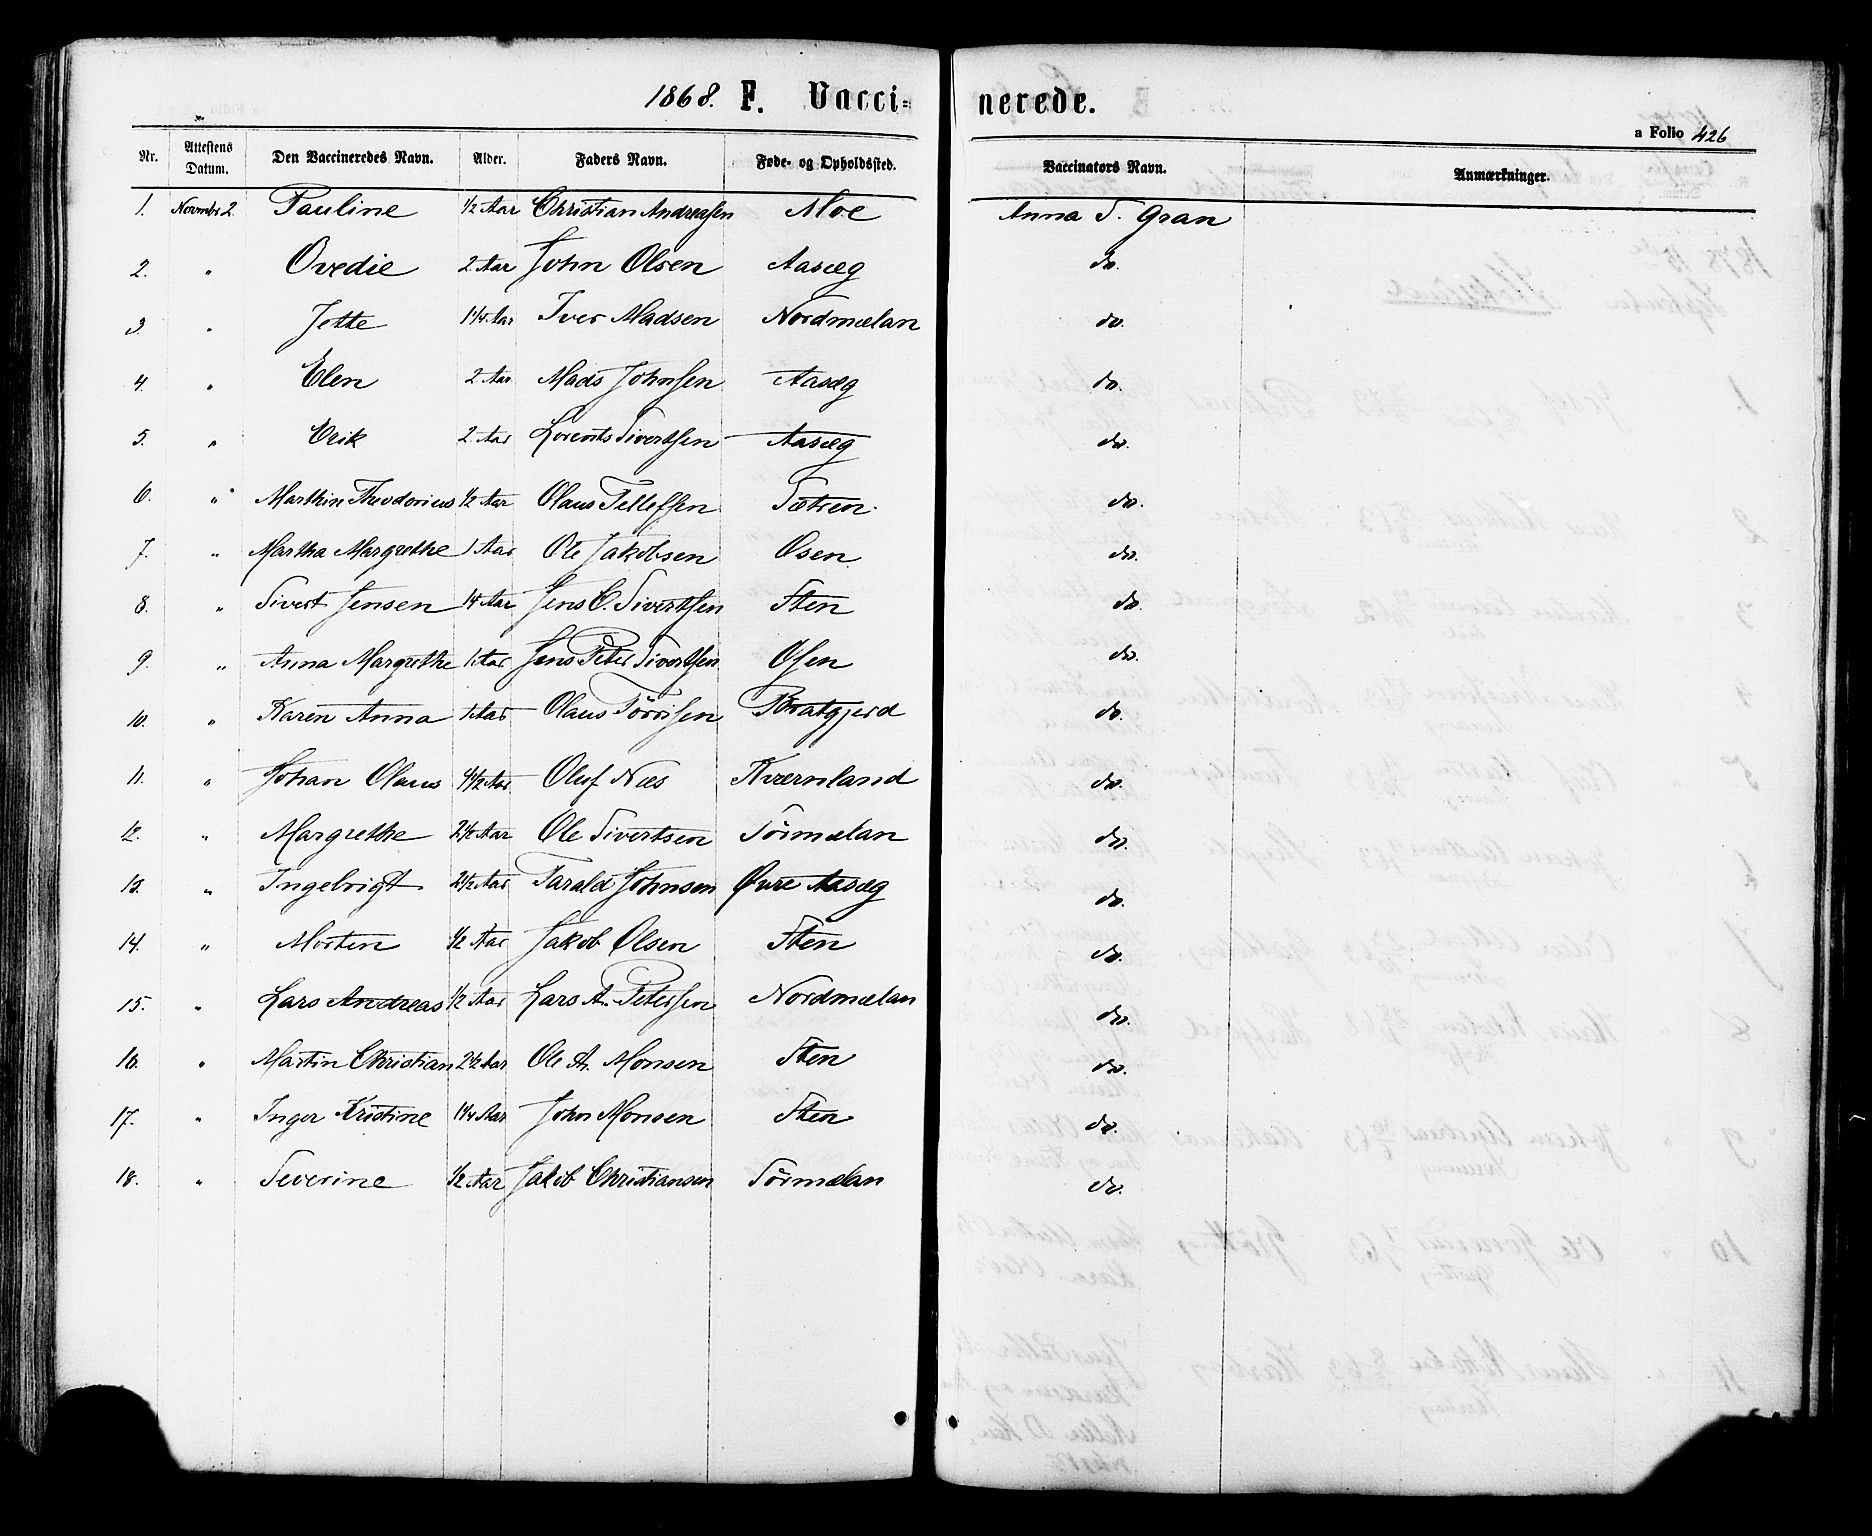 1868. F. Vacci= nerede.
a Folio 426
Nr. Attestens Datum. Den Vaccineredes Navn. Alder. Faders Navn. Føde- og Opholdssted. Vaccinators Navn. Anmærkninger.
1. Novembr 2. Pauline 1/2 Aar Christian Andreassen Moe Anna S. Gran
2. " Ovedie 2 Aar John Olsen Aasæg do.
3. " Jette 1 1/4 Aar Iver Madsen Nordmælan do.
4. " Elen 2 Aar Mads Johnsen Aasæg do.
5. " Erik 2 Aar Lorents Sivertsen Aasæg do.
6. " Marthin Theodorius 1/2 Aar Olaus Tellefsen Sætren. do.
7. " Martha Margrethe 1 Aar Ole Jakobsen Osen do.
8. " Sivert Jensen 14 Aar Jens C. Sivertsen Sten do.
9. " Anna Margrethe 1 Aar Jens Peter Sivertsen Osen do.
10. " Karen Anna 1 Aar Olaus Törrisen Bratgjerd do.
11. " Johan Olaus 4 1/2 Aar Oluf Næs Kværnland do.
12. " Margrethe 2 1/2 Aar Ole Sivertsen Sörmælan do.
13. " Ingebrigt 2 1/2 Aar Tarald Johnsen Øvre Aasæg do.
14. " Morten 1/2 Aar Jakob Olsen Sten do.
15. " Lars Andreas 1/2 Aar Lars A. Petersen Nordmælan do.
16. " Martin Christian 2 1/2 Aar Ole A. Monsen Sten do.
17. " Inger Kristine 1 1/4 Aar John Monsen Sten do.
18. " Severine 1/2 Aar Jakob Christiansen Sörmælan do.